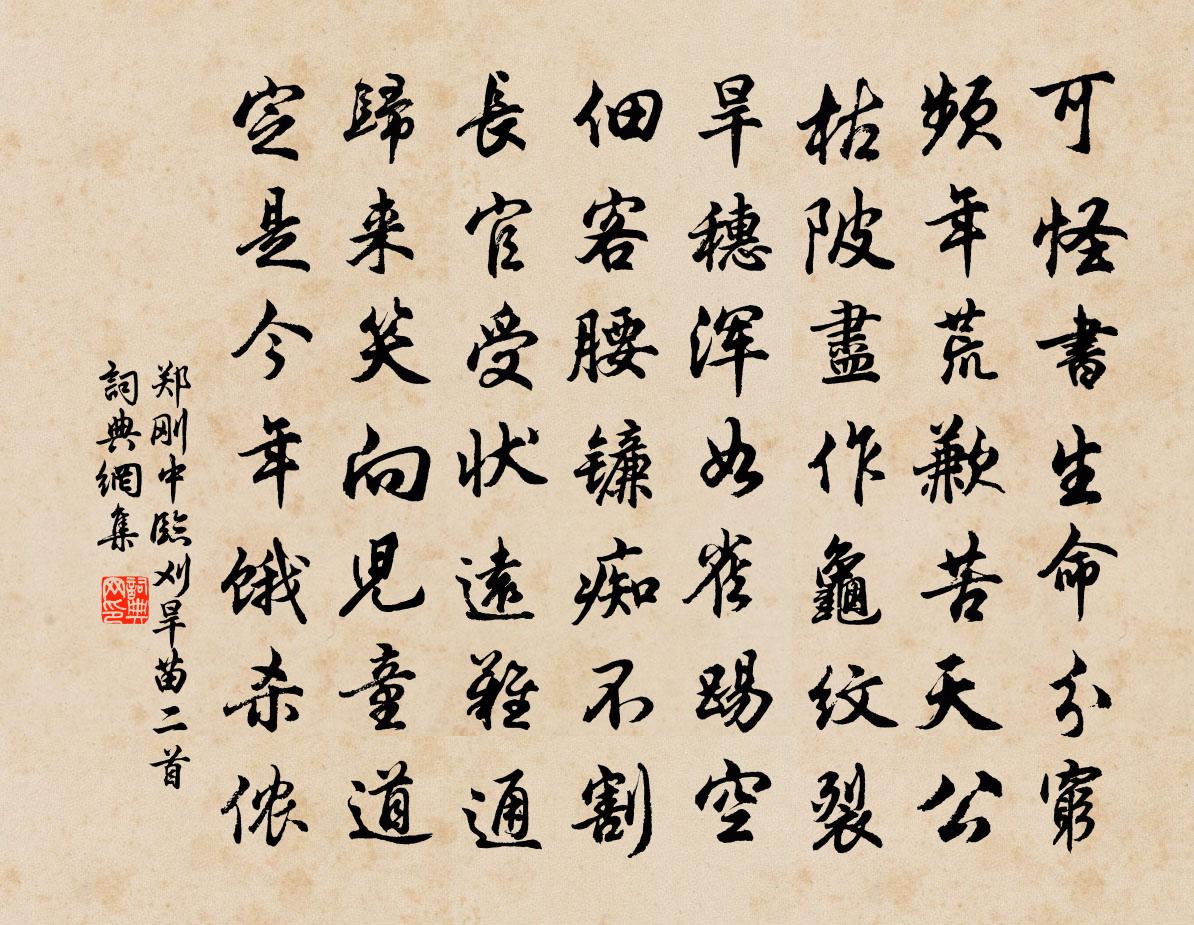 可怪書生命分窮
頻年荒歉苦天公
枯陂盡作龜紋裂
旱穗浑如雀踢空
佃客腰镰痴不割
長官受状遠難通
歸来笑向児童道
定是今年饿杀侬
郑刚中臨刈旱苗二首
詞典網集
詞典网印